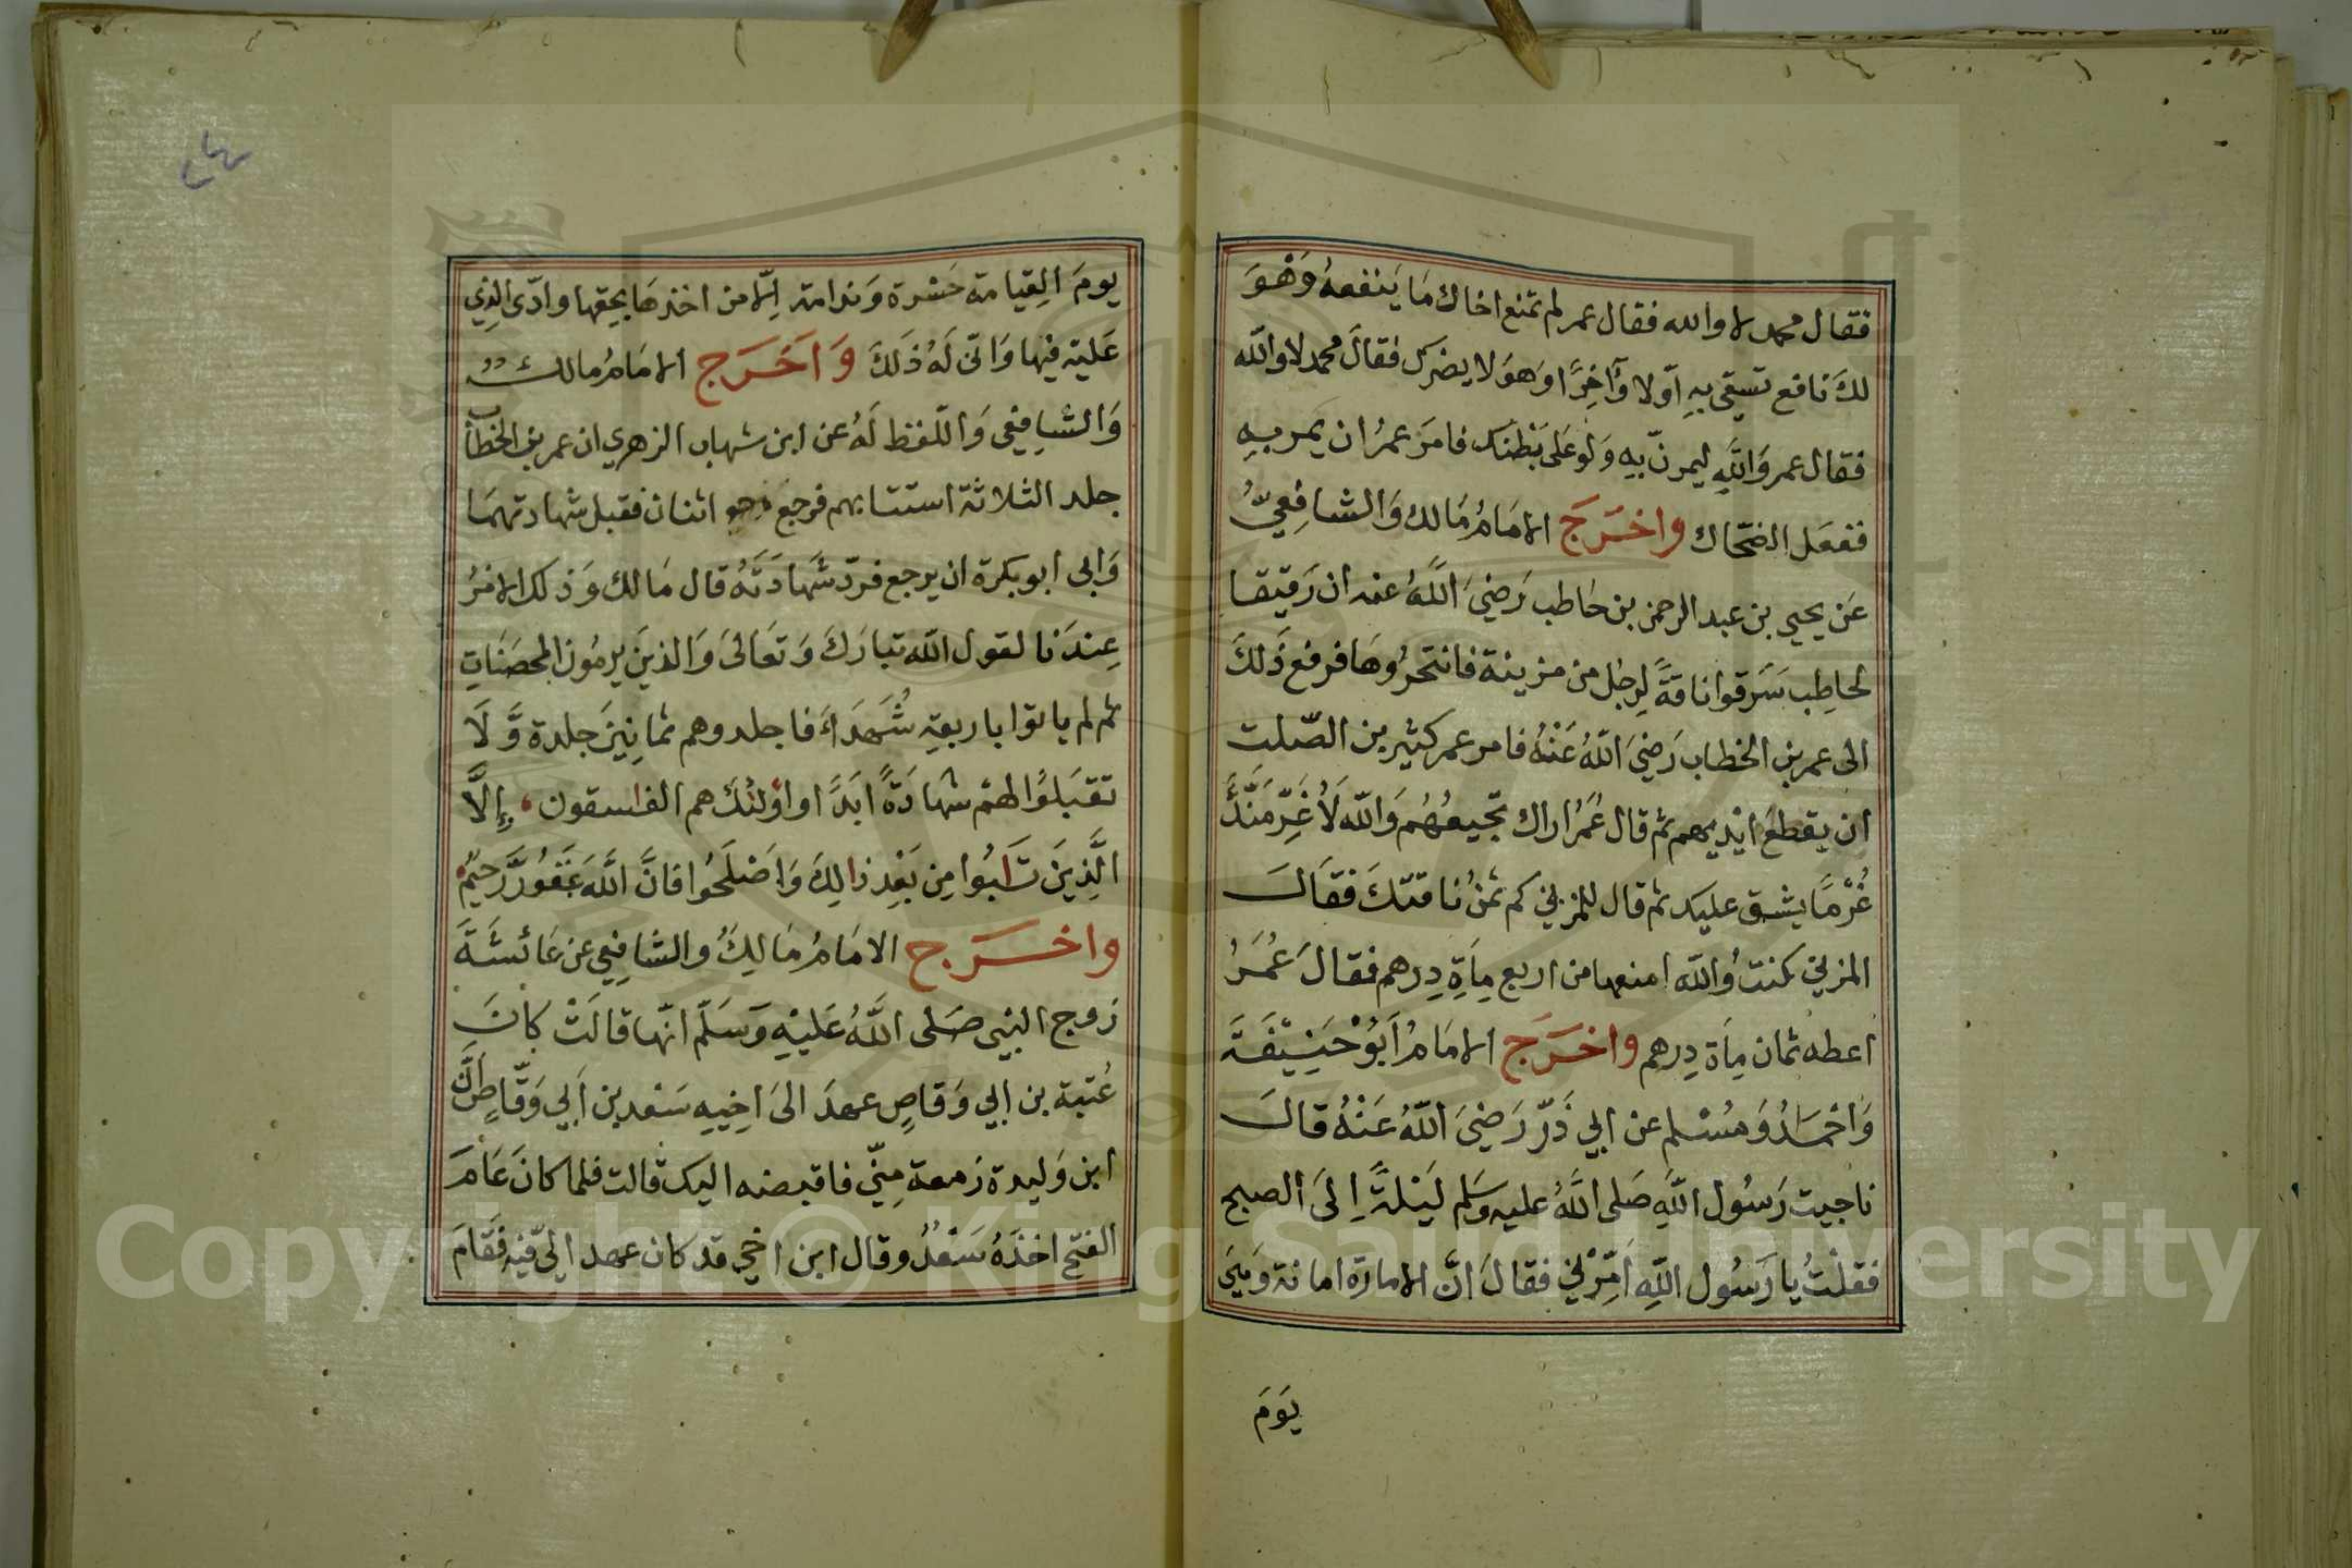 فقال محمد لا والله فقال عمر لم تمنع اخاك مَا يَنفعهُ وَهْوَ
لكَ نافع تسقى بهِ اَولا وَآخِرًا وَهوَ لا يضرك فقالَ محمد لا والله
فقال عمر وَاللهِ ليمرنّ بِهِ وَلَو عَلى بَطْنك فامَر عمرُ ان يمر بهِ
ففعَل الضحّاك واخرَجَ الامَامُ مَالك وَالشافِعيُّ
عَن يحيى بن عبد الرحمن بن حَاطب رَضيَ اللهُ عنه ان رَقيقا
لحاطِب سَرَقوا ناقةً لِرجُل من مزينة فانتحرُوهَا فرفع ذَلكَ
الى عمر بن الخطاب رَضيَ اللهُ عَنْهُ فامر عمر كثير بن الصّلت
ان يقطعَ ايْديهم ثم قال عُمَرُ اراك تجيعُهُم وَالله لَأُغَرِّمَنَّكَ
غُرْمًا يشق عليك ثم قال للمزني كم ثمنُ ناقتكَ فقَال
المزني كنتُ وَالله امنعهَا من اربع مِأَةِ دِرهم فقالَ عُمَرُ
اعطه ثمان مِأَة دِرهم واخرَجَ الامَامُ اَبُوْ حَنِيْفَةَ
وَاحْمَدُ وَمُسْلم عن ابي ذَرّ رَضيَ اللهُ عَنْهُ قال
ناجيت رَسُول اللهِ صَلى اللهُ عليه وسَلم لَيْلةً اِلىَ الصبح
فقلتُ يا رَسُول اللهِ اَمِّرْني فقالَ انَّ الامارَة امانة وَهيَ
يَومَ
يومَ الِقيامة حَسْرة وَندامة اِلّا من اخذهَا بحِقها وادّى الذِي
عَليه فيها وَانّى لَهُ ذَلكَ وَاَخرَج الامَامُ مالك
وَالشافِعي وَاللفظ لَهُ عن ابن شهاب الزهري ان عمر بن الخطاب
جلد الثلاثة استتابهم فرجعَ اثنان فقبل شهادتهمَا
وَابى ابو بكرة ان يرجع فردّ شهَادَتَهُ قال مَالك وَذلك الامْرُ
عِندَنا لقول الله تبارَكَ وَتعَالىَ وَالذينَ يرمُون المحصَنَاتِ
ثم لم ياتوا باربعةِ شُهَدَاءَ فاجلدوهم ثمانِينَ جلدة وَّلَا
تقبَلوُا لهمْ شهَادَةً ابَدًا واوُلئكَ هم الفاسقون اِلَّا
الَّذِينَ تَابُوا مِن بَعْدِ ذالِكَ وَاَصْلَحُوا فانَّ اللَّهَ غَفُورٌ رَّحِيْمٌ
واخرَج الامَامُ مَالِكُ والشافِعي عن عَائشَةَ
زَوج النبي صَلى اللهُ عَليْهِ وَسَلّم انّها قالَتْ كانَ
عُتبة بن ابي وَقاصٍ عهدَ الىَ اَخِيهِ سَعْد بن اَبي وَقّاصٍ اَنَّ
ابن وَليدة زَمعة مِنّي فاقبضه اليك قالت فلما كانَ عَامَ
الفتح اخذَهُ سَعْدُ وقال ابن اخي قد كان عهد اليّ فيْه فقَامَ